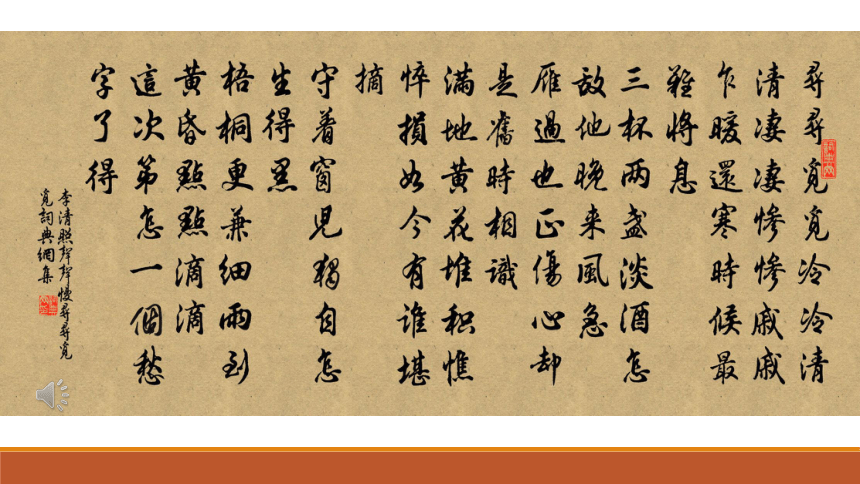 尋尋覓覓冷冷清
清凄凄慘慘戚戚
乍暖還寒時候最
難將息
三杯两盏淡酒怎
敌他晚来風急
雁過也正傷心却
是舊時相識
满地黄花堆积憔
悴損如今有谁堪
摘
守着窗児獨自怎
生得黑
梧桐更兼细雨到
黄昏點點滴滴
這次第怎一個愁
字了得
李清照聲聲慢尋尋覓
覓詞典網集